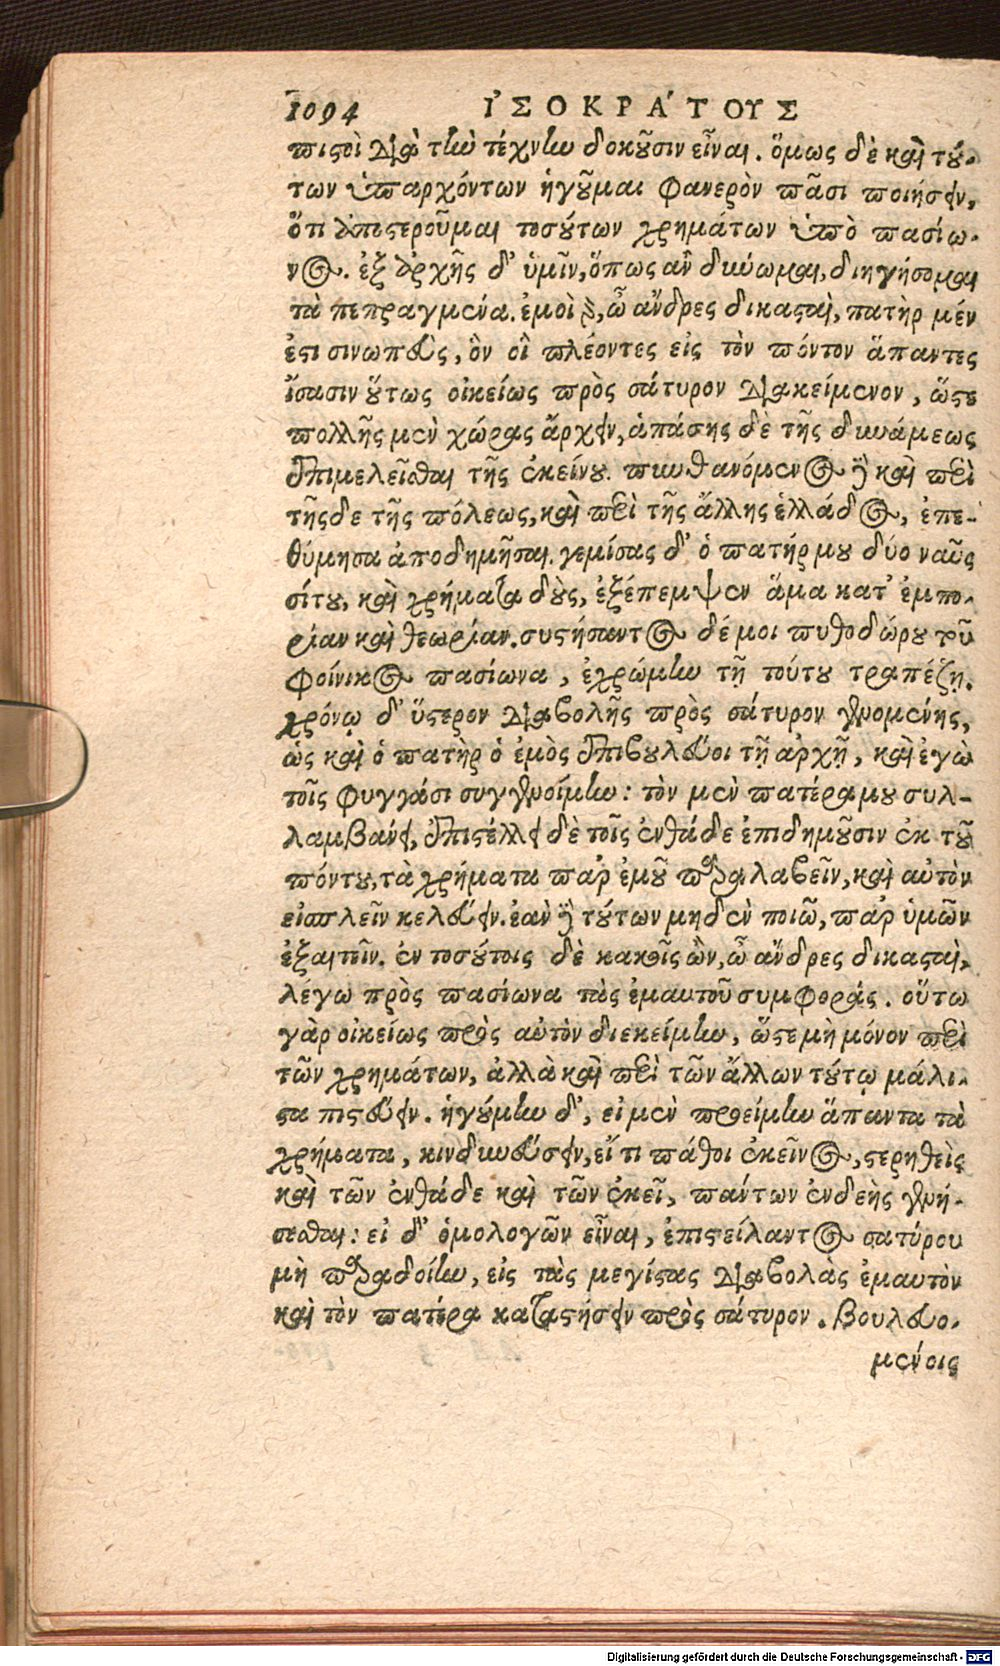 1094 ἸΣΟΚΡΆΤΟΥΣ
πιστοὶ διὰ τὴν τέχνην δοκοῦσιν εἶναι. ὅμως δὲ καὶ τού-
των ὑπαρχόντων ἡγοῦμαι φανερὸν πᾶσι ποιήσειν,
ὅτι ἀποστεροῦμαι τοσούτων χρημάτων ὑπὸ πασίω-
νος. ἐξ ἀρχῆς δ' ὑμῖν, ὅπως ἂν δύνωμαι, διηγήσομαι
τὰ πεπραγμένα. ἐμοὶ γὰρ, ὦ ἄνδρες δικασταὶ, πατὴρ μέν
ἐστι σινωπεὺς, ὃν οἱ πλέοντες εἰς τὸν πόντον ἅπαντες
ἴσασιν οὕτως οἰκείως πρὸς σάτυρον διακείμενον, ὥστε
πολλῆς μὲν χώρας ἄρχειν, ἁπάσης δὲ τῆς δυνάμεως
ἐπιμελεῖσθαι τῆς ἐκείνου. πυνθανόμενος δὲ καὶ περὶ
τῆσδε τῆς πόλεως, καὶ περὶ τῆς ἄλλης ἑλλάδος, ἐπε-
θύμησα ἀποδημῆσαι. γεμίσας δ' ὁ πατήρ μου δύο ναῦς
σίτου, καὶ χρήματα δοὺς, ἐξέπεμψεν ἅμα κατ' ἐμπο-
ρίαν καὶ θεωρίαν. συστήσαντος δέ μοι πυθοδώρου τοῦ
φοίνικος πασίωνα, ἐχρώμην τῇ τούτου τραπέζῃ.
χρόνῳ δ' ὕστερον διαβολῆς πρὸς σάτυρον γενομένης,
ὡς καὶ ὁ πατὴρ ὁ ἐμὸς ἐπιβουλεύοι τῇ ἀρχῇ, καὶ ἐγὼ
τοῖς φυγάσι συγγενοίμην: τὸν μὲν πατέρα μου συλ-
λαμβάνει, ἐπιστέλλει δὲ τοῖς ἐνθάδε ἐπιδημοῦσιν ἐκ τοῦ
πόντου, τὰ χρήματα παρ' ἐμοῦ παραλαβεῖν, καὶ αὐτὸν
εἰσπλεῖν κελεύειν. ἐὰν δὲ τούτων μηδὲν ποιῶ, παρ' ὑμῶν
ἐξαιτεῖν. ἐν τοσούτοις δὲ κακοῖς ὢν, ὦ ἄνδρες δικασταὶ,
λέγω πρὸς πασίωνα τὰς ἐμαυτοῦ συμφοράς. οὕτω
γὰρ οἰκείως πρὸς αὐτὸν διεκείμην, ὥστε μὴ μόνον περὶ
τῶν χρημάτων, ἀλλὰ καὶ περὶ τῶν ἄλλων τούτῳ μάλι-
στα πιστεύειν. ἡγούμην δ', εἰ μὲν προείμην ἅπαντα τὰ
χρήματα, κινδυνεύσειν, εἴ τι πάθοι ἐκεῖνος, στερηθεὶς
καὶ τῶν ἐνθάδε καὶ τῶν ἐκεῖ, πάντων ἐνδεὴς γενή-
σεσθαι: εἰ δ' ὁμολογῶν εἶναι, ἐπιστείλαντος σατύρου
μὴ παραδοίην, εἰς τὰς μεγίστας διαβολὰς ἐμαυτὸν
καὶ τὸν πατέρα καταστήσειν πρὸς σάτυρον. βουλευο-
μένοις
Digitalisierung gefördert durch die Deutsche Forschungsgemeinschaft - DFG